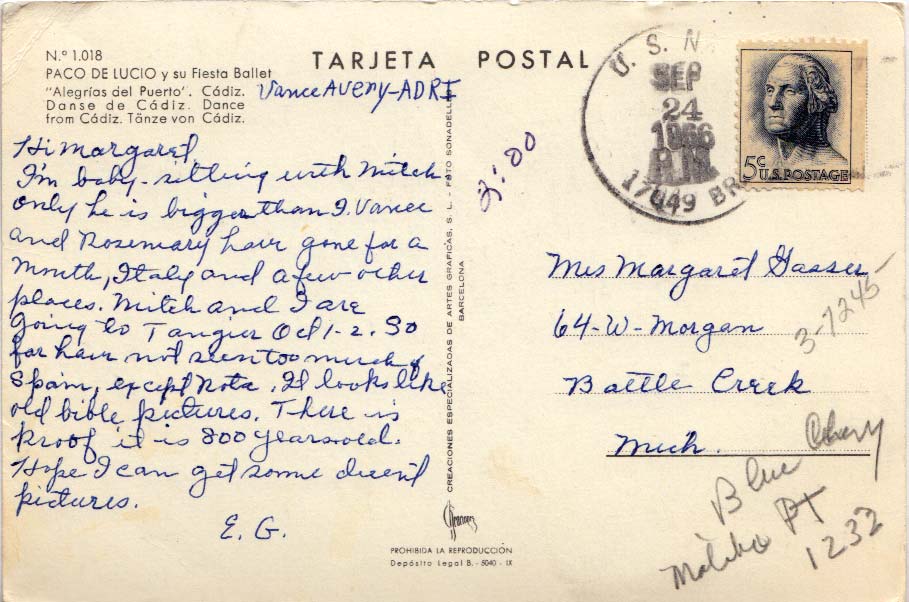 N.º 1.018
PACO DE LUCIO y su Fiesta Ballet
"Alegrías del Puerto". Cádiz.
Danse de Cádiz. Dance
from Cádiz. Tänze von Cádiz.
TARJETA POSTAL
Vance Avery-ADRI
Hi Margaret,
I'm baby-sitting with Mitch
only he is bigger than I. Vance
and Rosemary have gone for a
month, Italy and a few other
places. Mitch and I are
going to Tangier Oct 1-2. So
far have not seen too much of
Spain, except Rota. It looks like
old bible pictures. There is
proof it is 800 years old.
Hope I can get some decent
pictures.
E. G.
CREACIONES ESPECIALIZADAS DE ARTES GRAFICAS, S. L. - FOTO SONADELLE
BARCELONA
PROHIBIDA LA REPRODUCCIÓN
Depósito Legal B. - 5040 - IX
2:00
U. S. N.
SEP
24
1966
P.M.
17049 BR
5c
U.S. POSTAGE
Mrs Margaret Gasser
64-W-Morgan
Battle Creek
Mich.
3-7245
Blue
Malibo PT
1232